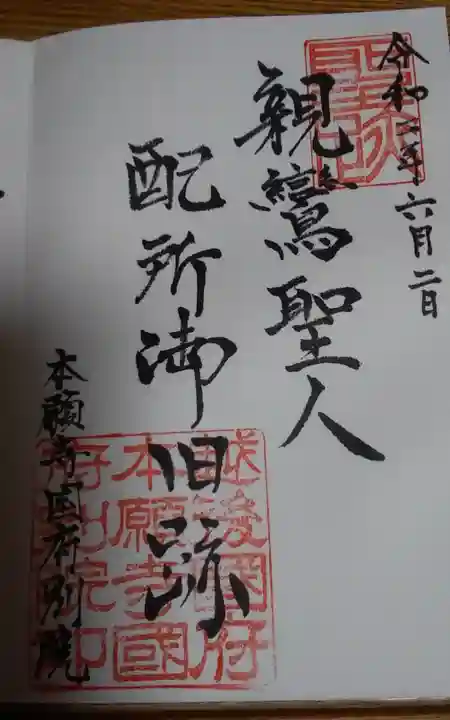 令和二年六月二日
聖跡
親鸞聖人
配所御旧跡
本願寺国府別院
越後國府
本願寺國
府別院印